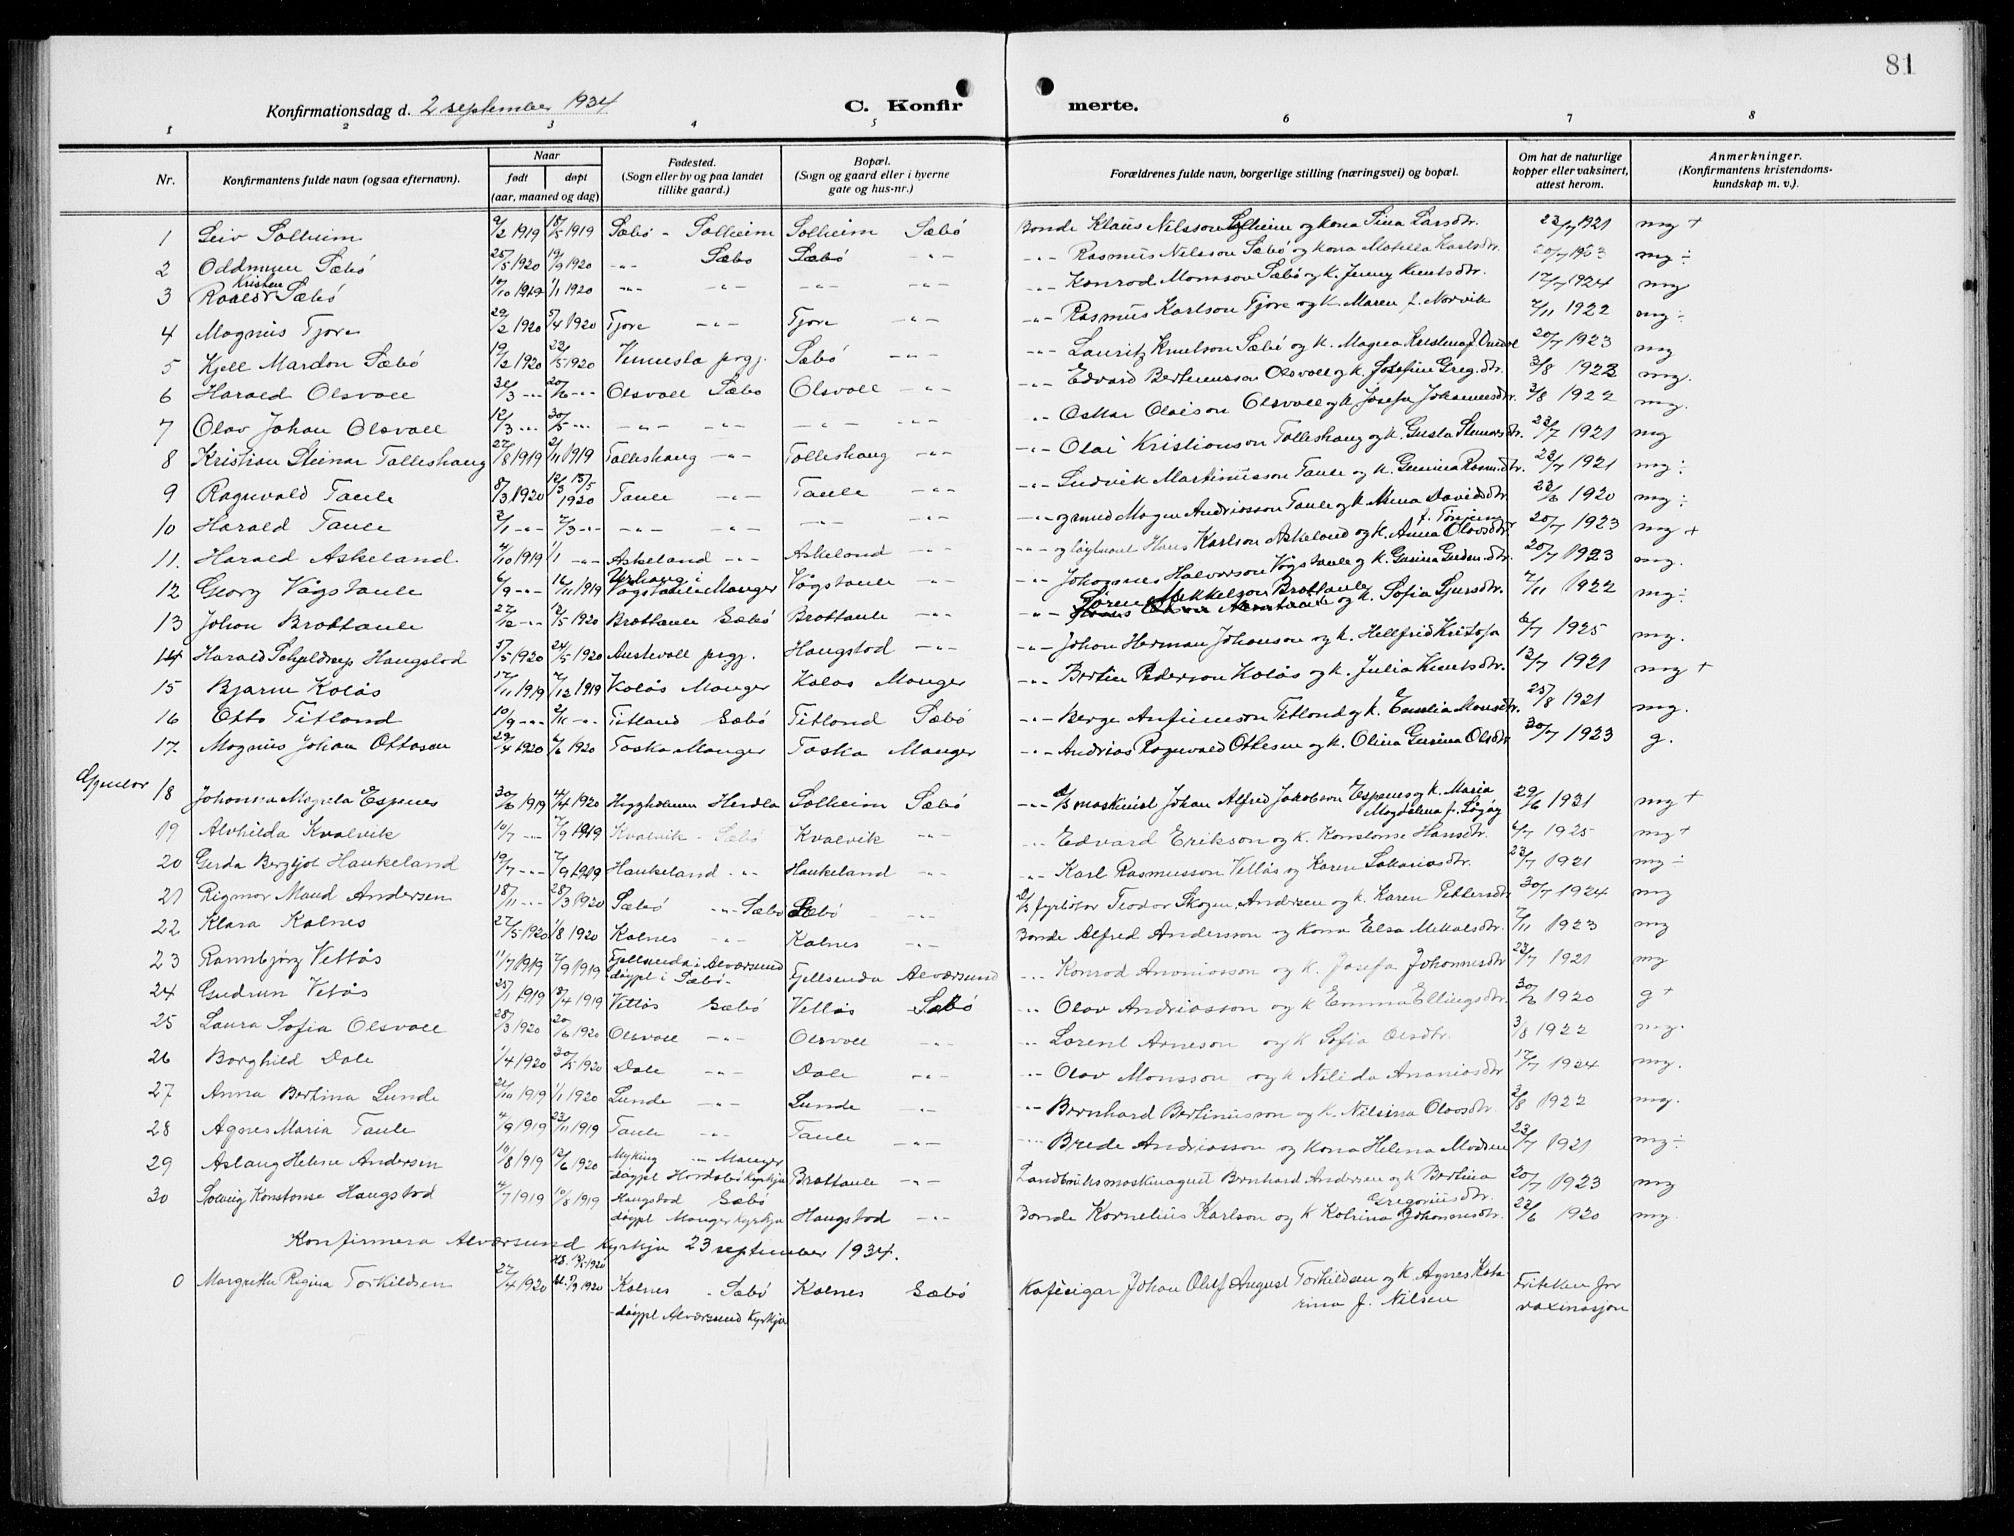 81
Konfirmationsdag d. 2 september 1934
C. Konfirmerte.
1 2 3 4 5 6 7 8
Nr. Konfirmantens fulde navn (ogsaa efternavn). Naar født døpt (aar, maaned og dag) Fødested. (Sogn eller by og paa landet tillike gaard.) Bopæl. (Sogn og gaard eller i byerne gate og hus-nr.) Forældrenes fulde navn, borgerlige stilling (næringsvei) og bopæl. Om hat de naturlige kopper eller vaksinert, attest herom. Anmerkninger. (Konfirmantens kristendomskundskap m. v.).
1 Leiv Solheim 9/2 1919 18/5 1919 Sæbø - Solheim Solheim Sæbø Bonde Klaus Nilsson Solheim og kona Sina Larsdtr. 23/7 1921 mg +
2 Oddmunn Sæbø 25/5 1920 19/9 1920 -"- Sæbø Sæbø -"- -"- Rasmus Nilsson Sæbø og kona Matella Karlsdtr. 20/7 1923 mg ÷
3 Roald Kristen Sæbø 10/10 1919 1/1 1920 -"- -"- -"- -"- -"- Konrad Monsson Sæbø og k. Jenny Knutsdtr. 17/7 1924 mg
4 Magnus Tjore 29/2 1920 5/4 1920 Tjore -"- Tjore -"- -"- Rasmus Karlson Tjore og k. Maren f. Norvik 7/11 1922 mg ÷
5 Kjell Mardon Sæbø 19/2 1920 23/5 1920 Vennesla prgj. Sæbø -"- -"- Lauritz Knutson Sæbø og k. Magna Kristena f. 20/7 1923 mg
6 Harald Olsvoll 31/3 -"- 20/6 -"- Olsvoll Sæbø Olsvoll -"- -"- Edvard Bertinusson Olsvoll og k. Josefine Greg.dtr. 3/8 1922 mg.
7 Olav Johan Olsvoll 12/3 -"- 30/5 -"- -"- -"- -"- -"- -"- Oskar Olaison Olsvoll og k. Josefa Johannesdtr. 3/8 1922 mg.
8 Kristian Steinar Tolleshaug 27/8 1919 2/11 1919 Tolleshaug -"- Tolleshaug -"- -"- Olai Kristianson Tolleshaug og k. Gusta Steinarsdtr. 23/7 1921 mg
9 Ragnvald Taule 8/3 1920 12/3 15/5 1920 Taule -"- Taule -"- -"- Ludvik Martinusson Taule og k. Gunina Rasm.dtr. 23/7 1921 mg ÷
10 Harald Taule 2/1 -"- 7/3 -"- -"- -"- -"- -"- -"- og smed Mogen Andriasson Taule og k. Anna Davidsdtr. 23/6 1920 mg ÷
11. Harald Askeland. 4/10 1919 1/1 -"- Askeland -"- Askeland -"- -"- og løytnant Hans Karlson Askeland og k. Anna Olavsdtr. 20/7 1923 mg +
12 Georg Vågstaule 6/9 -"- 16/11 1919 Vågstaule Manger Vågstaule -"- -"- Johannes Halvorson Vågstaule og k. Gurina Gudm.dtr. 20/7 1923 mg.
13 Johan Brottaule 27/12 -"- 13/5 1920 Brottaule Sæbø Brottaule -"- -"- Søren Mikkelson Brottaule og k. Sofia Sjursdtr. 7/11 1922 mg ÷
14 Harald Schjeldrup Haugstod 5/5 1920 24/5 1920 Austevoll prgj. Haugstod -"- -"- Johan Herman Johanson og k. Hellfrid Kristofa 6/7 1925 mg.
15 Bjarne Kolås 17/11 1919 7/12 1919 Kolås Manger Kolås Manger -"- Bertin Pederson Kolås og k. Julia Knutsdtr. 13/7 1921 mg +
16 Otto Titland 10/9 -"- 2/11 -"- Titland Sæbø Titland Sæbø -"- Berge Anfinnson Titland og k. Emilia Monsdtr. 25/8 1921 mg.
17. Magnus Johan Ottosen 29/4 1920 6/6 1920 Toska Manger Toska Manger -"- Andrias Ragnvald Ottesen og k. Olina Gurina Olsdtr. 30/7 1923 g.
Gjentor 18 Johanna Magnela Espenes 30/6 1919 4/4 1920 Herdla Solheim Sæbø -"- d/s maskinist Johan Alfred Jakobson Espenes og k. Maria Magdalena f. Løgøy 29/6 1921 mg +
19 Alvhilda Kvalvik 10/7 -"- 7/9 1919 Kvalvik - Sæbø Kvalvik -"- -"- Edvard Erikson og k. Konstanse Hansdtr. 6/7 1925 mg +
20 Gerda Bergljot Haukeland 19/7 -"- 7/9 1919 Haukeland -"- Haukeland -"- -"- Karl Rasmusson Vettås og Karen Sakariasdtr. 23/7 1921 mg ÷
21 Rigmor Maud Andersen 18/11 -"- 28/3 1920 Sæbø -"- Sæbø Sæbø -"- d/s fyrbøtar Teodor Skogen Andersen og k. Karen Pettersdtr. 30/7 1924 mg
22 Klara Kolnes 27/5 1920 1/8 1920 Kolnes -"- Kolnes -"- Bonde Alfred Andersson og kona Elsa Mikalsdtr. 7/11 1923 mg
23 Rannbjørg Vettås 11/7 1919 7/9 1919 Fjellsenda i Alværsund døypt i Sæbø. Fjellsenda Alværsund -"- Konrad Ananiasson og k. Josefa Johannesdtr. 23/7 1921 mg
24 Gudrun Vetås 25/1 1919 18/4 1919 Vettås Sæbø Vettås Sæbø -"- Olav Andriasson og k Emma Ellingsdtr. 30/6 1920 g +
25 Laura Sofia Olsvoll 28/3 1920 20/6 1920 Olsvoll -"- Olsvoll -"- -"- Lorent Arneson og k Sofia Olsdtr. 3/8 1922 mg.
26 Borghild Dale 1/4 1920 30/5 1920 Dale -"- Dale -"- -"- Olav Monsson og k Nilida Ananiasdtr 17/7 1924 mg.
27 Anna Bertina Lunde 21/10 1919 1/1 1920 Lunde -"- Lunde -"- -"- Bernhard Bertinusson og k. Nilsina Olavsdtr. 3/8 1922 mg.
28 Agnes Maria Taule 4/9 1919 23/11 1919 Taule -"- Taule -"- -"- Brede Andriasson og kona Helena Madsen 23/7 1921 mg ÷
29 Aslaug Helene Andersen 10/8 1919 13/6 1920 Myking -"- Manger døypt Hordabø Kyrkja Brottaule -"- Landbruksmaskinagent Bernhard Andersen og k Bertina Gregoriusdtr. 20/7 1923 mg
30 Solveig Konstanse Haugstod 4/7 1919 10/8 1919 Haugstod Sæbø døypt Manger kyrkja Haugstod -"- Bonde Kornelius Karlson og k Katrina Johannesdtr. 23/6 1920 mg.
Konfirmera Alværsund Kyrkja 23 september 1934.
0 Margretha Regina Torkildsen 27/4 1920 Kolnes - Sæbø Kolnes Sæbø Kaféeigar Johan Oluf August Torkildsen og k. Agnes Katarina f. Nilsen Friteken for vaxinasjon
døypt Alværsund Kyrkja